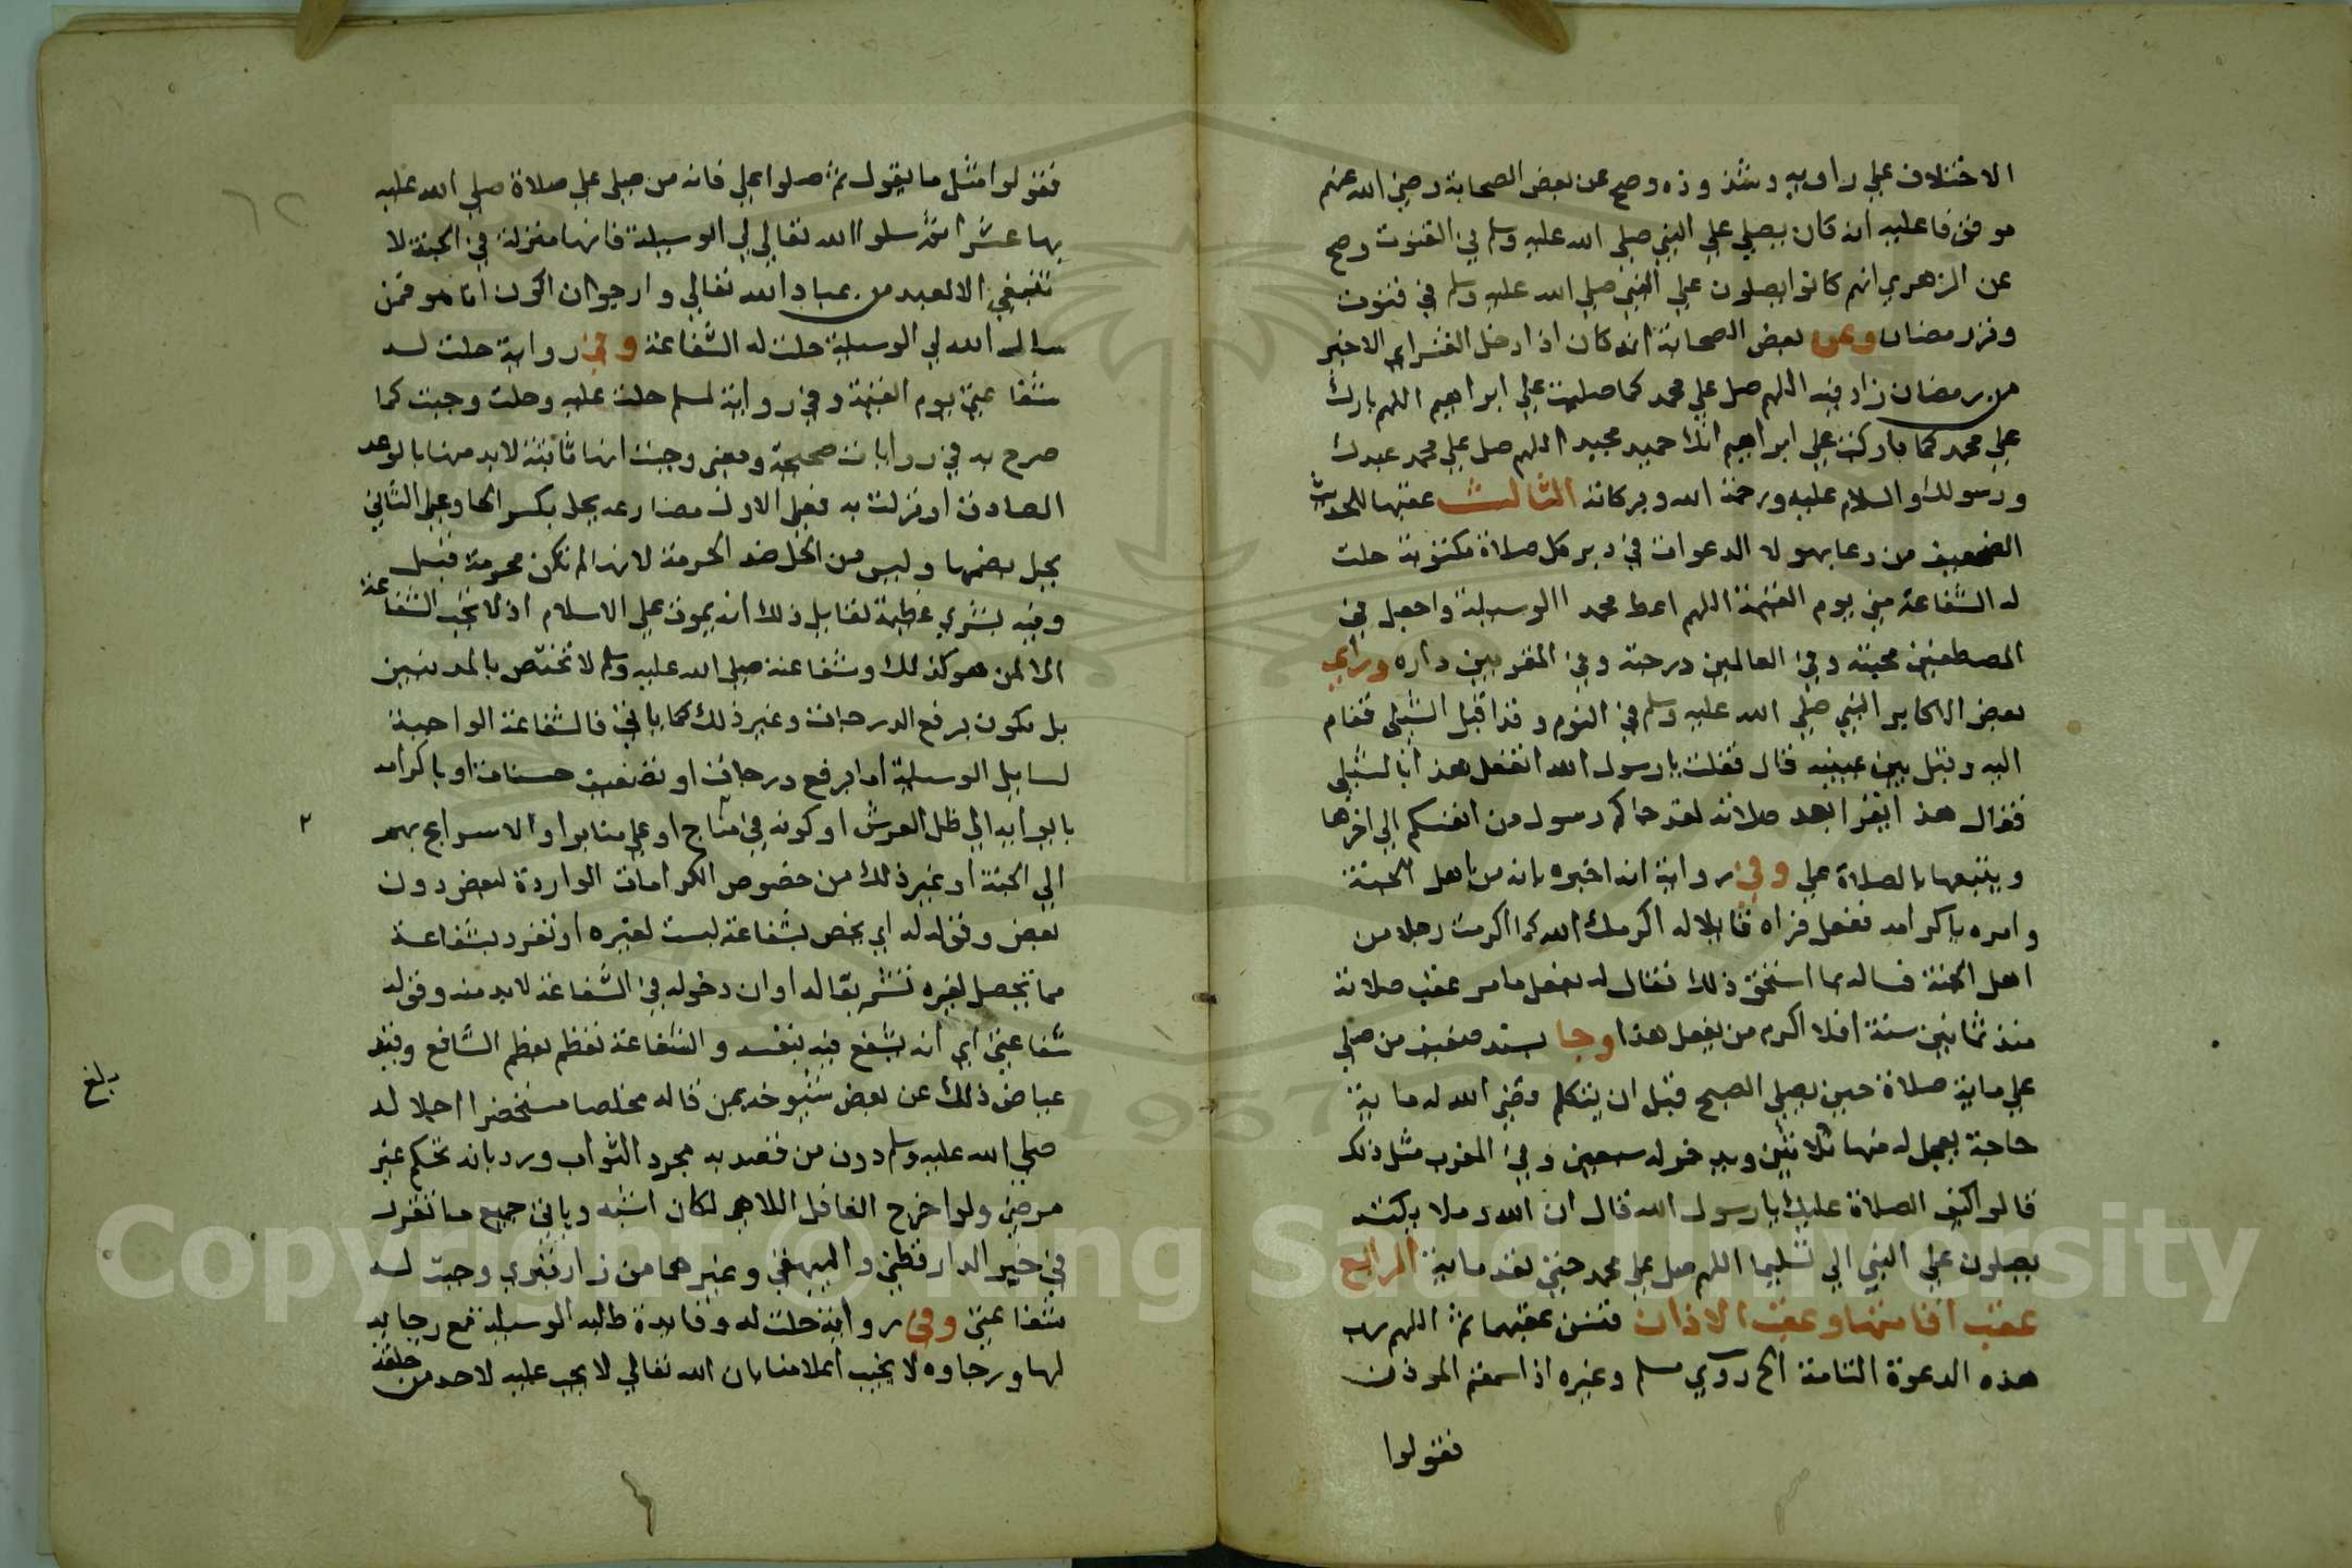 الاختلاف علي راويه وشذوذه وصح عن بعض الصحابة رضي الله عنهم
موقوفا عليه انه كان يصلي علي النبي صلي الله عليه وسلم في القنوت وصح
عن الزهري انهم كانوا يصلون علي النبي صلي الله عليه وسلم في قنوت
وتر رمضان وعن بعض الصحابة انه كان اذا دخل العشر الاخير
من رمضان زاد فيه اللهم صل علي محمد كما صليت علي ابراهيم اللهم بارك
علي محمد كما باركت علي ابراهيم انك حميد مجيد اللهم صل علي محمد عبدك
ورسولك والسلام عليه ورحمة الله وبركاته الثالث عقبها للحديث
الضعيف من دعا بهولا الدعوات في دبر كل صلاة مكتوبة حلت
له الشفاعة مني يوم القيمة اللهم اعط محمد االوسيلة واجعل في
المصطفين محبته وفي العالمين درجته وفي المقربين داره وراي
بعض الاكابر النبي صلي الله عليه وسلم في النوم وقد اقبل الشبلي فقام
اليه وقبل بين عينيه قال فقلت يا رسول الله اتفعل هذا بالشبلي
فقال هذا يقرا بعد صلاته لقد جاكم رسول من انفسكم الي اخرها
ويتبعها بالصلاة علي وفي رواية انه اخبره بانه من اهل الجنة
وامره باكرامه ففعل فراه قايلا له اكرمك الله كما اكرمت رجلا من
اهل الجنة فساله بما استحق ذلك فقال له بفعل ما مر عقب صلاته
منذ ثمانين سنة افلا اكرم من يفعل هذا وجا بسند ضعيف من صلي
علي ماية صلاة حين يصلي الصبح قبل ان يتكلم قضي الله له ماية
حاجة يعجل له منها ثلاثين ويدخر له سبعين وفي المغرب مثل ذلك
قالوا كيف الصلاة عليك يا رسول الله قال ان الله وملايكته
يصلون علي النبي الي تسليما اللهم صل علي محمد حتي تعد ماية الرابع
عقب اقامتها وعقب الاذان فتسن عقبهما ثم اللهم رب
هذه الدعوة التامة الخ روي مسلم وغيره اذا سمعتم الموذن
فقولوا
فقولوا مثل ما يقول ثم صلوا علي فانه من صلي علي صلاة صلي الله عليه
بها عشرا ثم سلوا الله تعالي لي الوسيلة فانها منزلة في الجنة لا
تنبغي الا لعبد من عباد الله تعالي وارجوا ان اكون انا هو فمن
سال الله لي الوسيلة حلت له الشفاعة وفي رواية حلت له
شفاعتي يوم القيمة وفي رواية لمسلم حلت عليه وحلت وجبت كما
صرح به في روايات صحيحة ومعني وجبت انها ثابتة لا بد منها بالوعد
الصادق او نزلت به فعلي الاول مضارعه يحل بكسر الحا وعلي الثاني
يحل بضمها وليس من الحل ضد الحرمة لانها لم تكن محرمة قبل
وفيه بشري عظيمة لقايل ذلك انه يموت علي الاسلام اذ لا تجب الشفاعة
الا لمن هو كذلك وشفاعته صلي الله عليه وسلم لا تختص بالمذنبين
بل تكون برفع الدرجات وغير ذلك كما ياتي فالشفاعة الواجبة
لسايل الوسيلة اما برفع درجات او تضعيف حسنات او باكرامه
بايوايه الي ظل العرش او كونه في او علي منابر او الاسراع بهم
الي الجنة او غير ذلك من خصوص الكرامات الواردة لبعض دون
بعض وقوله له اي يخص بشفاعة ليست لغيره او تفرد بشفاعة
مما تحصل لغيره تشريفا له او ان دخوله في الشفاعة لا بد منه وقوله
شفاعتي اي انه يشفع فيه بنفسه والشفاعة تعظم بعظم الشافع وقيد
عياض ذلك عن بعض شيوخه بمن قاله مخلصا مستحضرا اجلاله
صلي الله عليه وسلم دون من قصد به مجرد الثواب ورد بانه تحكم غير
مرضي ولو اخرج الغافل اللاهي لكان اشبه وياتي جميع ما تقرر
في خبر الدارقطني والبيهقي وغيرهما من زار قبري وجبت له
شفاعتي وفي رواية حلت له وفايدة طلبه الوسيلة مع رجايه
لها ورجاوه لا يخيب اعلامنا بان الله تعالي لا يجب عليه لاحد من خلقه
بلغ
٦٢